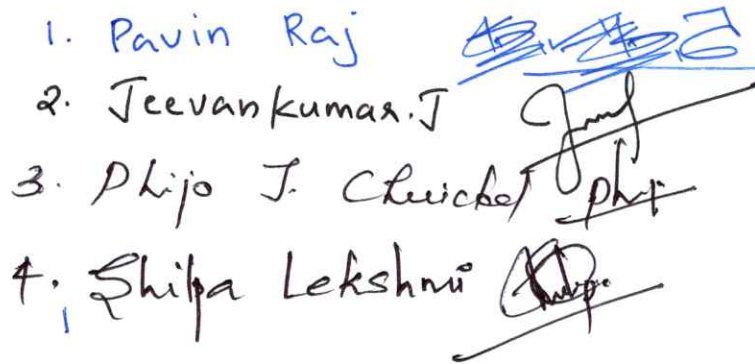 1. Pavin Raj
2. Jeevankumar.J
3. Dhijo J.
4. Shilpa Lekshmi